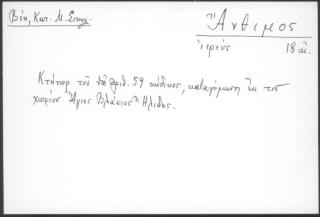 Βέη, Κατ. Μ. Σπηλ.
Ἄνθιμος
ἱερεύς
18 αἰ.
Κτήτωρ τοῦ ὑπ' ἀριθ. 59 κώδικος, καταγόμενος ἐκ τοῦ
χωρίου Ἅγιος Βλάσιος Ἠλιδος.